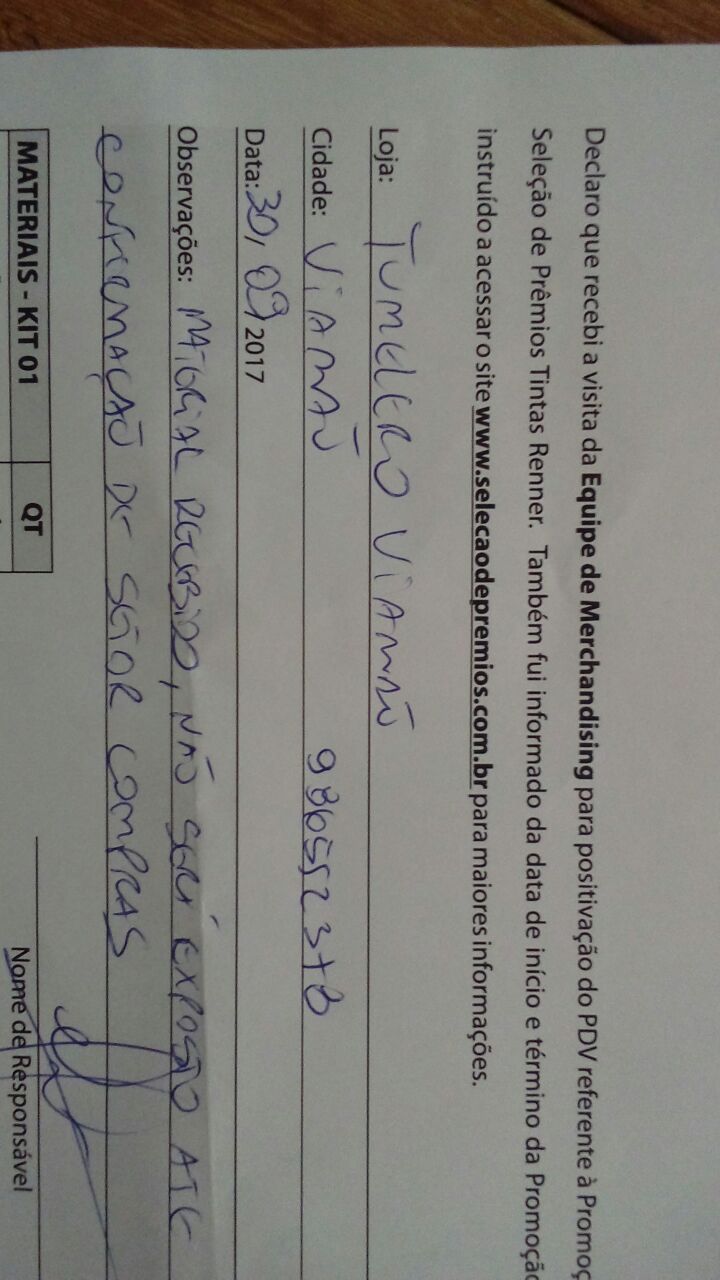 Declaro que recebi a visita da Equipe de Merchandising para positivação do PDV referente à Promoç
Seleção de Prêmios Tintas Renner. Também fui informado da data de início e término da Promoção
instruído a acessar o site www.selecaodepremios.com.br para maiores informações.
Loja: TUMELERO VIAMÃO
Cidade: VIAMÃO 986552378
Data: 30, 09, 2017
Observações: MATERIAL RECEBIDO, NÃO SERÁ EXPOSTO ATE
CONFIRMAÇÃO DE SETOR COMPRAS
MATERIAIS - KIT 01 QT
Nome de Responsável